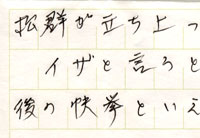 松群が立ち上っ
イザと言うと
後の快挙といえ